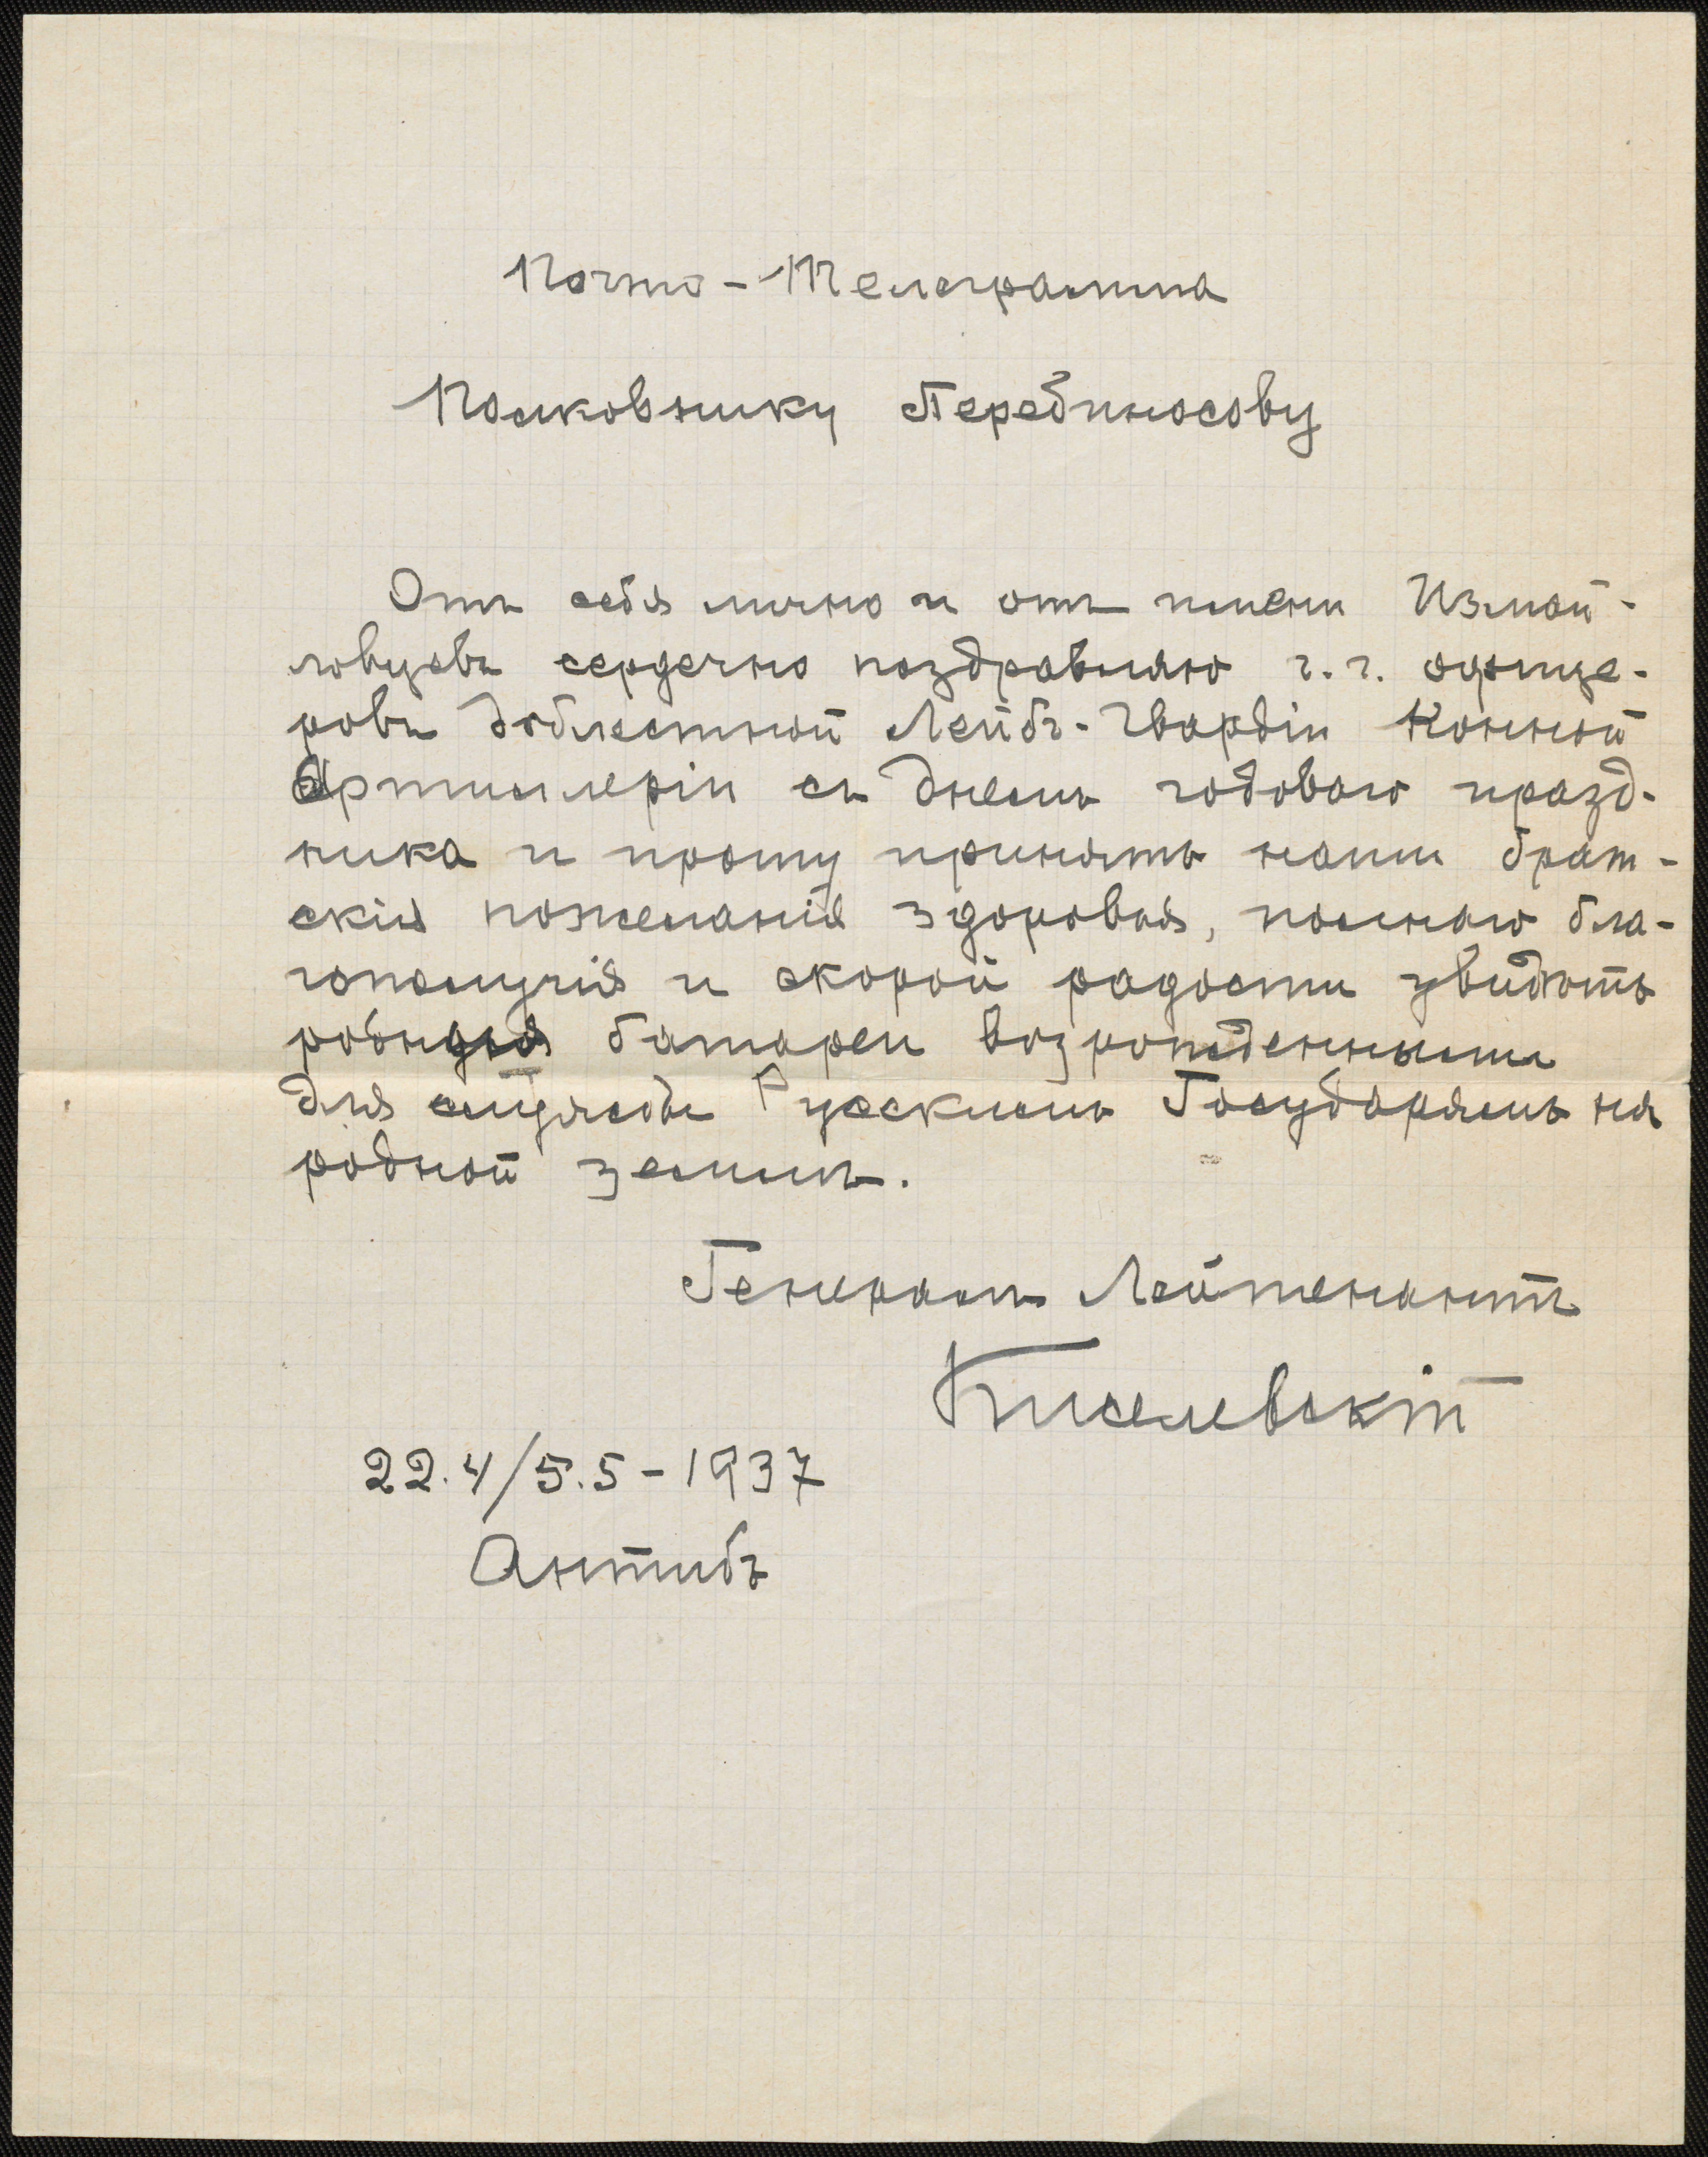 Почто-Телеграмма
Полковнику Перебиносову
Отъ себя лично и отъ имени Измай-
ловцевъ сердечно поздравляю г.г. офице-
ровъ доблестной Лейбъ-Гвардіи Конной
Артиллеріи съ днемъ годоваго празд-
ника и прошу принять наши брат-
скія пожеланія здоровья, полнаго бла-
гополучія и скорой радости увидѣть
родныя батареи возрожденными
для службы Русскимъ Государямъ на
родной землѣ.
Генералъ Лейтенантъ
Киселевскій
22.4/5.5-1937
Антибъ